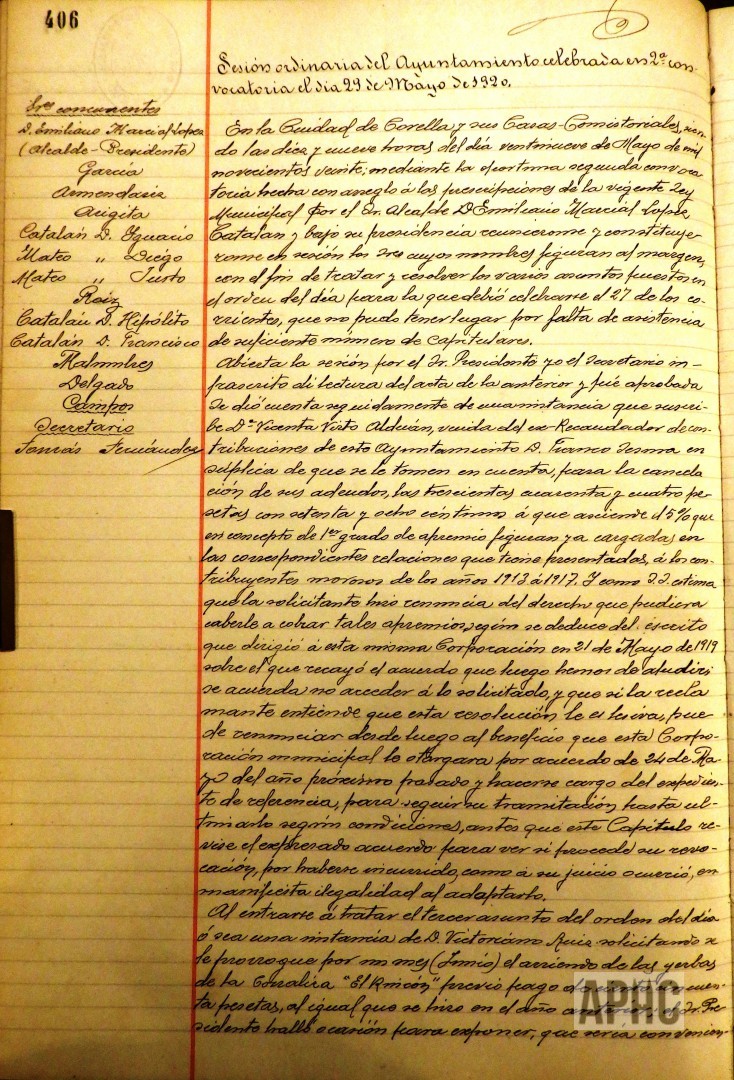 406
Sesión ordinaria del Ayuntamiento celebrada en 2ª con-
vocatoria el dia 29 de Mayo de 1920.
Sres concurrentes
D. Emiliano Marcial Lopez
(Alcalde-Presidente)
García
Armendariz
Catalán D. Ignacio
Mateo " Diego
Mateo " Justo
Catalán D. Hipólito
Catalán D. Francisco
Malumbres
Delgado
Campos
Secretario
Tomás Fernández
En la Ciudad de Corella y sus Casas-Comistoriales, sien-
do las diez y nueve horas del dia veintinueve de Mayo de mil
novecientos veinte; mediante la oportuna segunda convoca-
toria hecha con arreglo á las prescripciones de la vigente Ley
Municipal por el Sr. Alcalde D Emiliano Marcial Lopez
Catalan y bajo su presidencia reunieronse y constituye-
ronse en sesión los Sres cuyos nombres figuran al margen,
con el fin de tratar y resolver los varios asuntos puestos en
el orden del dia para la que debió celebrarse el 27 de los co-
rrientes, que no pudo tener lugar por falta de asistencia
de suficiente número de capitulares.
Abierta la sesión por el Sr. Presidente yo el Secretario in-
frascrito di lectura del acta de la anterior y fué aprobada
Se dió cuenta seguidamente de una instancia que suscri-
be Dª Vicenta Virto Alduán, viuda del ex-Recaudador de con-
tribuciones de este Ayuntamiento D. Franco Sesma en
súplica de que se le tomen en cuenta, para la cancela
ción de sus adeudos, las trescientas cuarenta y cuatro pe-
setas con setenta y ocho céntimos á que asciende el 5% que
en concepto de 1er grado de apremio figuran ya cargadas en
las correspondientes relaciones que tiene presentadas, á los con-
tribuyentes morosos de los años 1913 á 1917. Y como S.S. estima
que la solicitante hizo renuncia del derecho que pudiera
caberle a cobrar tales apremios, según se deduce del escrito
que dirigió á esta misma Corporación en 21 de Mayo de 1919
sobre el que recayó el acuerdo que luego hemos de aludir;
se acuerda no acceder á lo solicitado, y que si la recla
mante entiende que esta resolución le es lesiva, pue-
de renunciar desde luego al beneficio que esta Corpo-
ración municipal le otorgara por acuerdo de 24 de Ma-
yo del año próximo pasado y hacerse cargo del expedien-
te de referencia, para seguir su tramitación hasta ul-
timarlo según condiciones, antes que este Capítulo re-
vise el expresado acuerdo para ver si procede su revo-
cación, por haberse incurrido, como á su juicio ocurrió, en
manifiesta ilegalidad al adoptarlo.
Al entrarse á tratar el tercer asunto del orden del dia
ó sea una instancia de D. Victoriano Ruiz solicitando se
le prorrogue por un mes (Junio) el arriendo de las yerbas
de la Corraliza "El Rincón" previo pago de
ta pesetas, al igual que se hizo en el año anterior, el Sr. Pre-
sidente halló ocasión para exponer, que sería convenien-
APHC